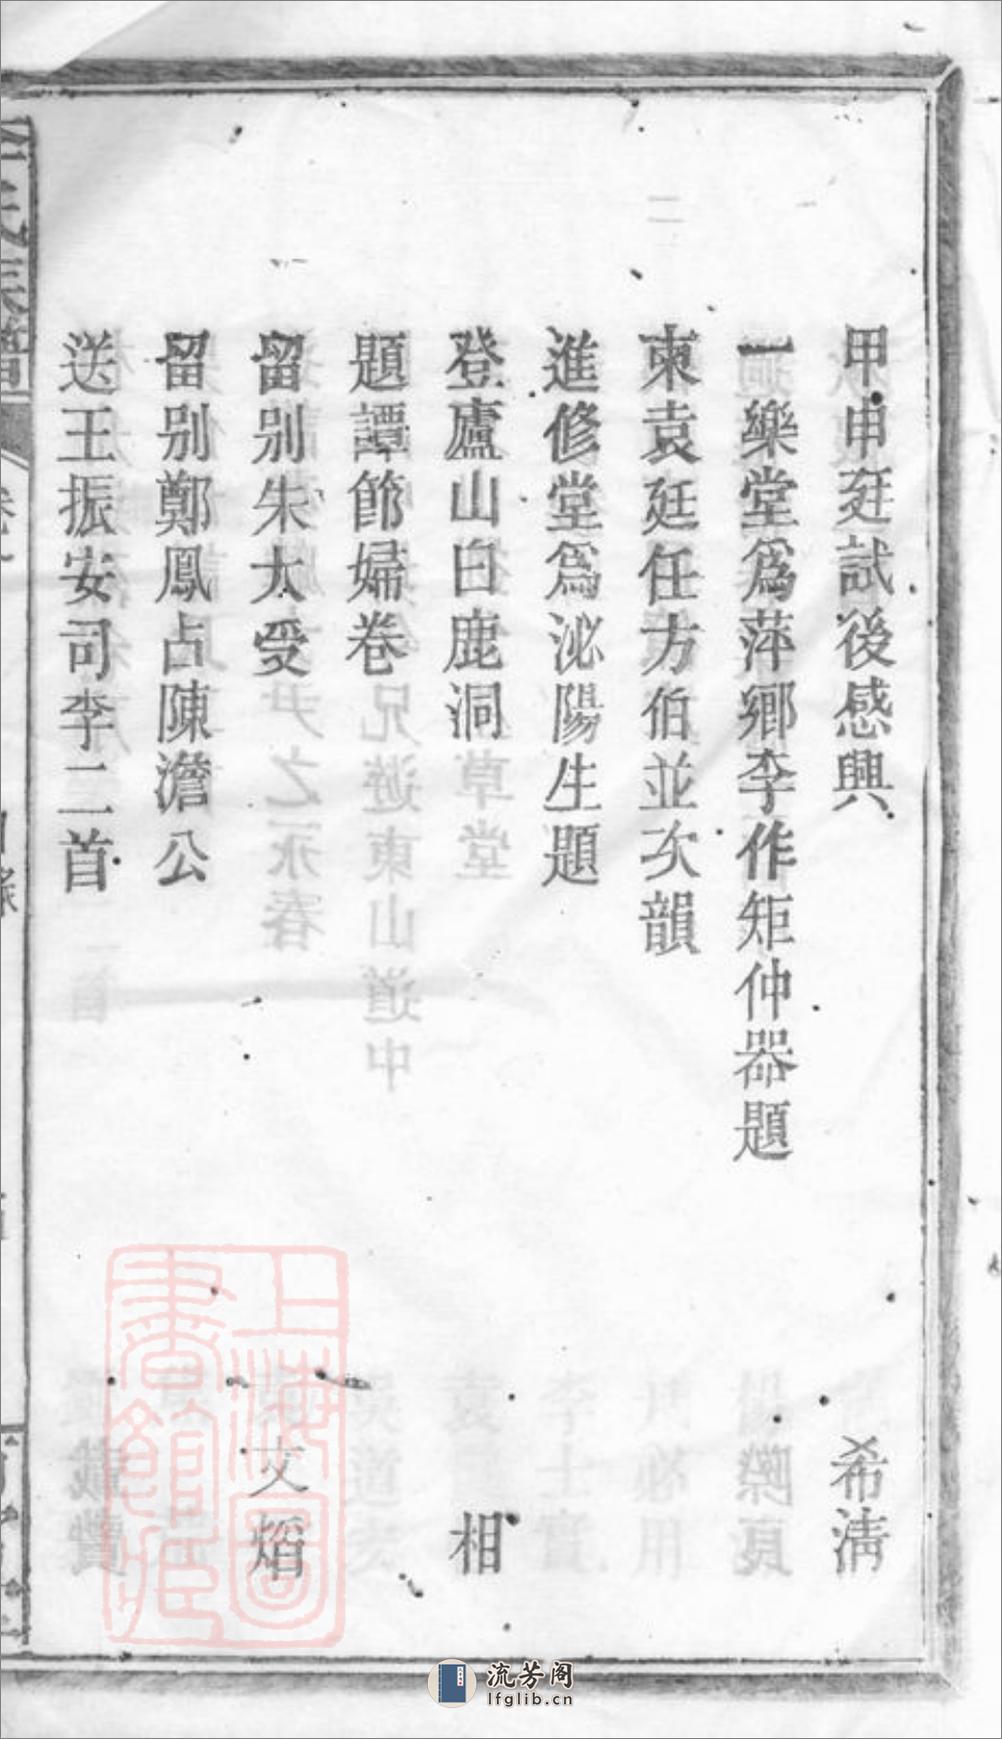 甲申廷試後感興 希淸
一樂堂爲萍鄉李作矩仲器題
柬袁廷任方伯並次韻
進修堂爲泌陽生題
登廬山白鹿洞 相
題譚節婦卷
留别朱大受 文熖
留别鄭鳳占陳澹公
送王振安司李二首
上海圖書館藏
流芳阁
lfglib.cn